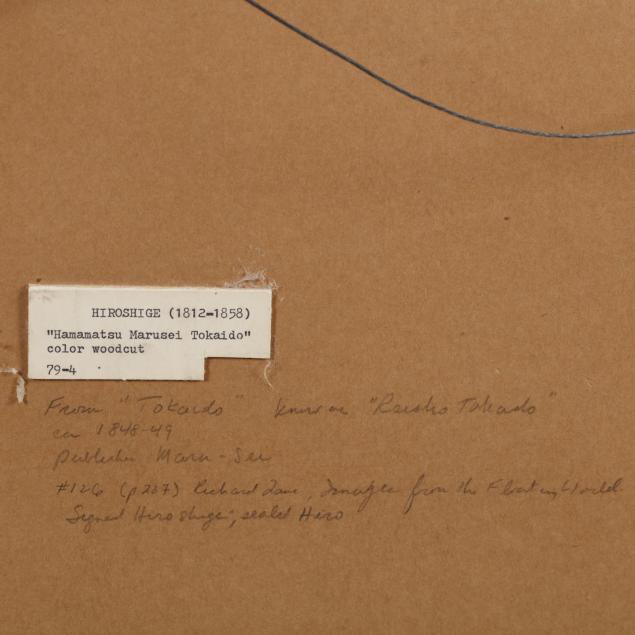 HIROSHIGE (1812-1858)
"Hamamatsu Marusei Tokaido"
color woodcut
79-4
From "Tokaido" known as "Reisho Tokaido"
ca 1848-49
publisher Maru-Sei
#126 (p237) Richard Lane, Images from the Floating World
Signed Hiroshige; sealed Hiro